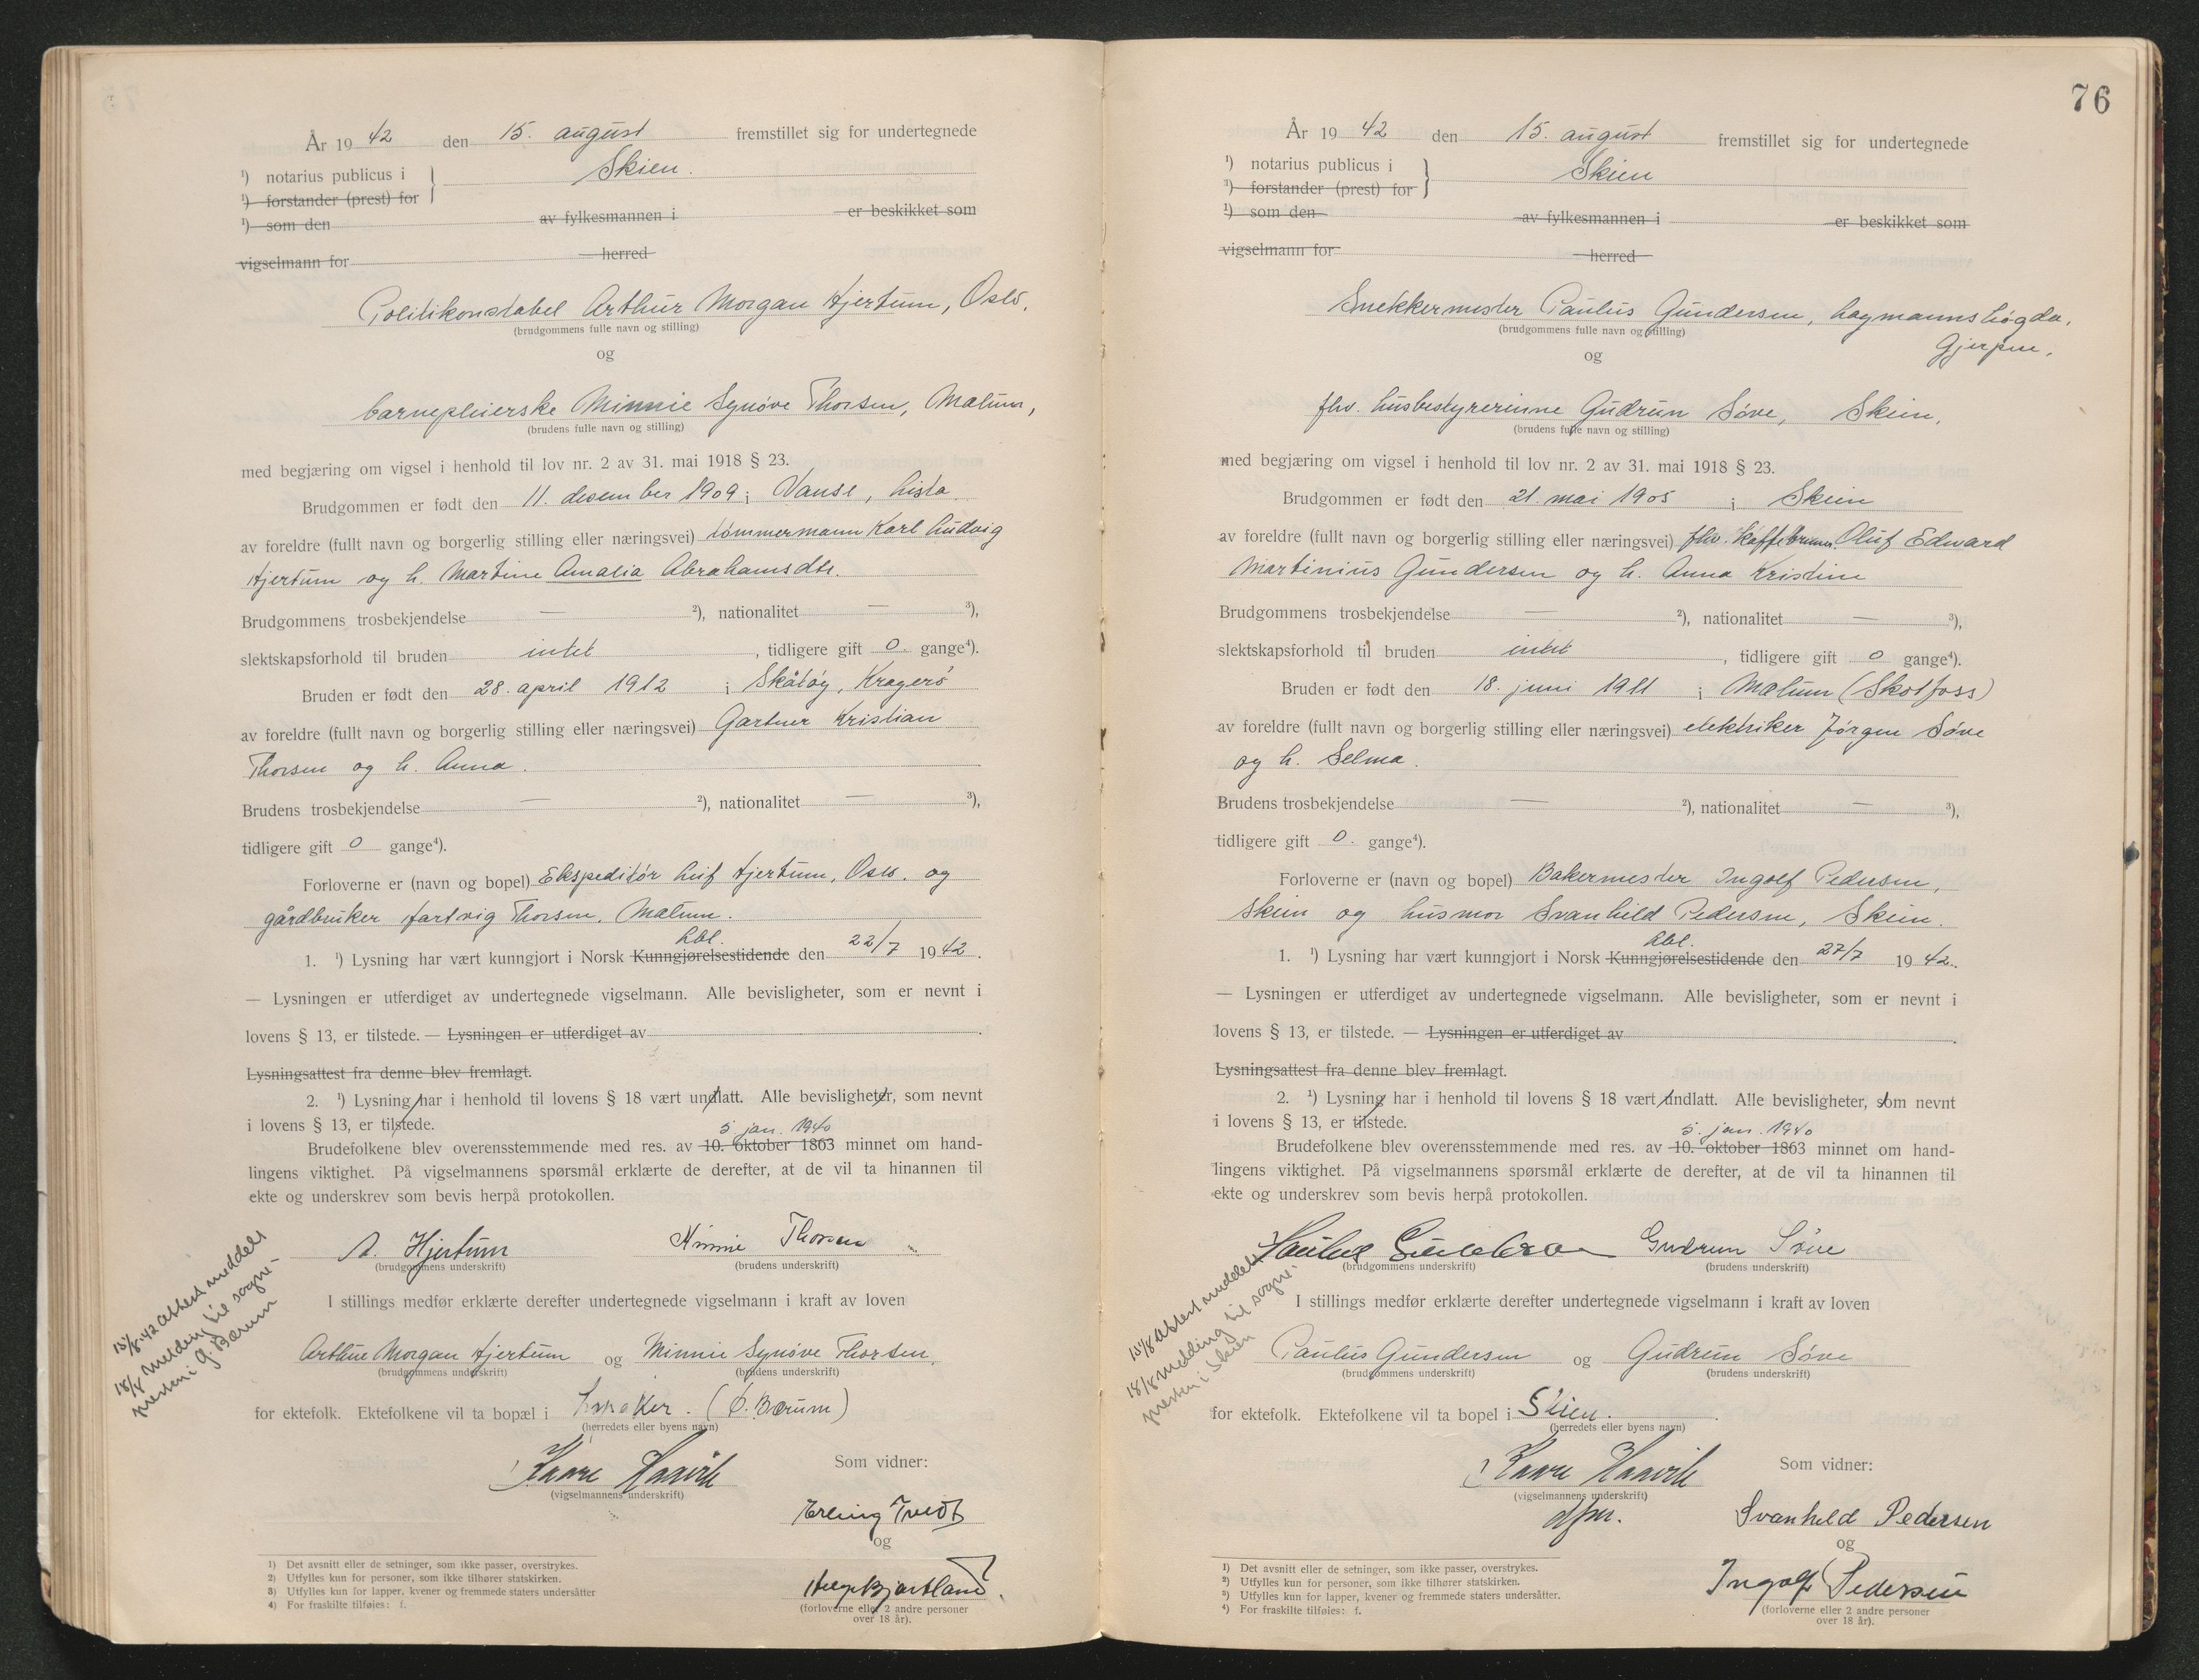 År 1942 den 15. august fremstillet sig for undertegnede
¹) notarius publicus i
Skien.
¹) forstander (prest) for
¹) som den av fylkesmannen i er beskikket som
vigselmann for herred
Politikonstabel Arthur Morgan Hjertum, Oslo.
(brudgommens fulle navn og stilling)
og
barnepleierske Minnie Synøve Thorsen, Mælum,
(brudens fulle navn og stilling)
med begjæring om vigsel i henhold til lov nr. 2 av 31. mai 1918 § 23.
Brudgommen er født den 11. desember 1909 i Vanse, Lista.
av foreldre (fullt navn og borgerlig stilling eller næringsvei) tømmermann Karl Ludvig
Hjertum og h. Martine Amalia Abrahamsdtr.
Brudgommens trosbekjendelse — ²), nationalitet — ³),
slektskapsforhold til bruden intet, tidligere gift 0 gange⁴).
Bruden er født den 28. april 1912 i Skåtøy, Kragerø
av foreldre (fullt navn og borgerlig stilling eller næringsvei) Gartner Kristian
Thorsen og h. Anna.
Brudens trosbekjendelse — ²), nationalitet — ³),
tidligere gift 0 gange⁴).
Forloverne er (navn og bopel) Ekspeditør Leif Hjertum, Oslo. og
gårdbruker Hartvig Thorsen, Mælum.
Lbl.
1. ¹) Lysning har vært kunngjort i Norsk Kunngjørelsestidende den 22/7 1942.
— Lysningen er utferdiget av undertegnede vigselmann. Alle bevisligheter, som er nevnt i
lovens § 13, er tilstede. — Lysningen er utferdiget av .
Lysningsattest fra denne blev fremlagt.
2. ¹) Lysning har i henhold til lovens § 18 vært undlatt. Alle bevisligheter, som nevnt
i lovens § 13, er tilstede.
5. jan. 1940
Brudefolkene blev overensstemmende med res. av 10. oktober 1863 minnet om hand-
lingens viktighet. På vigselmannens spørsmål erklærte de derefter, at de vil ta hinannen til
ekte og underskrev som bevis herpå protokollen.
A. Hjertum Minnie Thorsen
(brudgommens underskrift) (brudens underskrift)
I stillings medfør erklærte derefter undertegnede vigselmann i kraft av loven
Arthur Morgan Hjertum og Minnie Synøve Thorsen,
(brudgommens underskrift) (brudens underskrift)
15/8-42 attest meddelt
18/8 melding til sogne-
presten i Ø. Bærum
for ektefolk. Ektefolkene vil ta bopæl i Lysaker. (Ø. Bærum)
(herredets eller byens navn)
Kaare Haavik
(vigselmannens underskrift)
Som vidner:
Erling Tvedt
og
(forloverne eller 2 andre personer
over 18 år).
1) Det avsnitt eller de setninger, som ikke passer, overstrykes.
2) Utfylles kun for personer, som ikke tilhører statskirken.
3) Utfylles kun for lapper, kvener og fremmede staters undersåtter
4) For fraskilte tilføies: f.
76
År 1942 den 15. august fremstillet sig for undertegnede
¹) notarius publicus i
Skien
¹) forstander (prest) for
¹) som den av fylkesmannen i er beskikket som
vigselmann for herred
Snekkermester Paulus Gundersen, Lagmannshøgda,
Gjerpen,
(brudgommens fulle navn og stilling)
og
fhv. husbestyrerinne Gudrun Søve, Skien,
(brudens fulle navn og stilling)
med begjæring om vigsel i henhold til lov nr. 2 av 31. mai 1918 § 23.
Brudgommen er født den 21. mai 1905 i Skien
av foreldre (fullt navn og borgerlig stilling eller næringsvei) fhv. kaffebrenner Oluf Edward
Martinius Gundersen og h. Anna Kristine
Brudgommens trosbekjendelse — ²), nationalitet — ³),
slektskapsforhold til bruden intet, tidligere gift 0 gange⁴).
Bruden er født den 18. juni 1911 i Mælum (Skotfoss)
av foreldre (fullt navn og borgerlig stilling eller næringsvei) elektriker Jørgen Søve
og h. Selma.
Brudens trosbekjendelse — ²), nationalitet — ³),
tidligere gift 0. gange⁴).
Forloverne er (navn og bopel) Bakermester Ingolf Pedersen,
Skien og husmor Svanhild Pedersen, Skien.
Lbl.
1. ¹) Lysning har vært kunngjort i Norsk Kunngjørelsestidende den 27/7 1942.
— Lysningen er utferdiget av undertegnede vigselmann. Alle bevisligheter, som er nevnt i
lovens § 13, er tilstede. — Lysningen er utferdiget av .
Lysningsattest fra denne blev fremlagt.
2. ¹) Lysning har i henhold til lovens § 18 vært undlatt. Alle bevisligheter, som nevnt
i lovens § 13, er tilstede.
5. jan. 1940
Brudefolkene blev overensstemmende med res. av 10. oktober 1863 minnet om hand-
lingens viktighet. På vigselmannens spørsmål erklærte de derefter, at de vil ta hinannen til
ekte og underskrev som bevis herpå protokollen.
Paulus Gundersen Gudrun Søve
(brudgommens underskrift) (brudens underskrift)
I stillings medfør erklærte derefter undertegnede vigselmann i kraft av loven
Paulus Gundersen og Gudrun Søve
(brudgommens underskrift) (brudens underskrift)
15/8 attest meddelt
18/8 melding til sogne-
presten i Skien
for ektefolk. Ektefolkene vil ta bopel i Skien.
(herredets eller byens navn)
Kaare Haavik
(vigselmannens underskrift)
dfm.
Som vidner:
Svanhild Pedersen
og
Ingolf Pedersen
(forloverne eller 2 andre personer
over 18 år).
¹) Det avsnitt eller de setninger, som ikke passer, overstrykes.
²) Utfylles kun for personer, som ikke tilhører statskirken.
³) Utfylles kun for lapper, kvener og fremmede staters undersåtter.
⁴) For fraskilte tilføies: f.